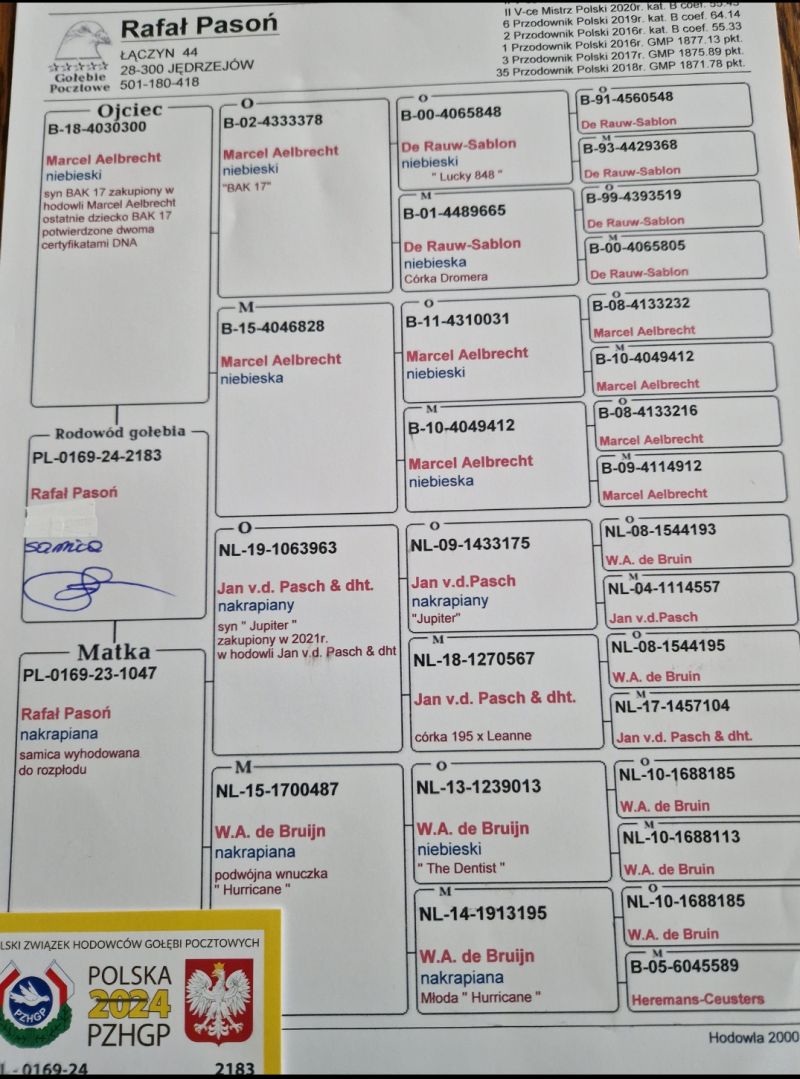 Rafał Pasoń
ŁĄCZYN 44
28-300 JĘDRZEJÓW
501-180-418
Gołębie
Pocztowe
II V-ce Mistrz Polski 2020r. kat. B coef. 55.43
6 Przodownik Polski 2019r. kat. B coef. 64.14
2 Przodownik Polski 2016r. kat. B coef. 55.33
1 Przodownik Polski 2016r. GMP 1877.13 pkt.
3 Przodownik Polski 2017r. GMP 1875.89 pkt.
35 Przodownik Polski 2018r. GMP 1871.78 pkt.
Ojciec
B-18-4030300
Marcel Aelbrecht
niebieski
syn BAK 17 zakupiony w
hodowli Marcel Aelbrecht
ostatnie dziecko BAK 17
potwierdzone dwoma
certyfikatami DNA
Rodowód gołębia
PL-0169-24-2183
Rafał Pasoń
samica
Matka
PL-0169-23-1047
Rafał Pasoń
nakrapiana
samica wyhodowana
do rozpłodu
O
B-02-4333378
Marcel Aelbrecht
niebieski
"BAK 17"
M
B-15-4046828
Marcel Aelbrecht
niebieska
O
NL-19-1063963
Jan v.d. Pasch & dht.
nakrapiany
syn " Jupiter "
zakupiony w 2021r.
w hodowli Jan v.d. Pasch & dht
M
NL-15-1700487
W.A. de Bruijn
nakrapiana
podwójna wnuczka
" Hurricane "
O
B-00-4065848
De Rauw-Sablon
niebieski
" Lucky 848 "
M
B-01-4489665
De Rauw-Sablon
niebieska
Córka Dromera
O
B-11-4310031
Marcel Aelbrecht
niebieski
M
B-10-4049412
Marcel Aelbrecht
niebieska
O
NL-09-1433175
Jan v.d.Pasch
nakrapiany
"Jupiter"
M
NL-18-1270567
Jan v.d. Pasch & dht.
córka 195 x Leanne
O
NL-13-1239013
W.A. de Bruijn
niebieski
" The Dentist "
M
NL-14-1913195
W.A. de Bruijn
nakrapiana
Młoda " Hurricane "
O
B-91-4560548
De Rauw-Sablon
M
B-93-4429368
De Rauw-Sablon
O
B-99-4393519
De Rauw-Sablon
M
B-00-4065805
De Rauw-Sablon
O
B-08-4133232
Marcel Aelbrecht
M
B-10-4049412
Marcel Aelbrecht
O
B-08-4133216
Marcel Aelbrecht
M
B-09-4114912
Marcel Aelbrecht
O
NL-08-1544193
W.A. de Bruin
M
NL-04-1114557
Jan v.d.Pasch
O
NL-08-1544195
W.A. de Bruin
M
NL-17-1457104
Jan v.d. Pasch & dht.
O
NL-10-1688185
W.A. de Bruin
M
NL-10-1688113
W.A. de Bruin
O
NL-10-1688185
W.A. de Bruin
M
B-05-6045589
Heremans-Ceusters
Hodowla 2000
LSKI ZWIĄZEK HODOWCÓW GOŁĘBI POCZTOWYCH
PZHGP
POLSKA
2024
PZHGP
L - 0169-24
2183